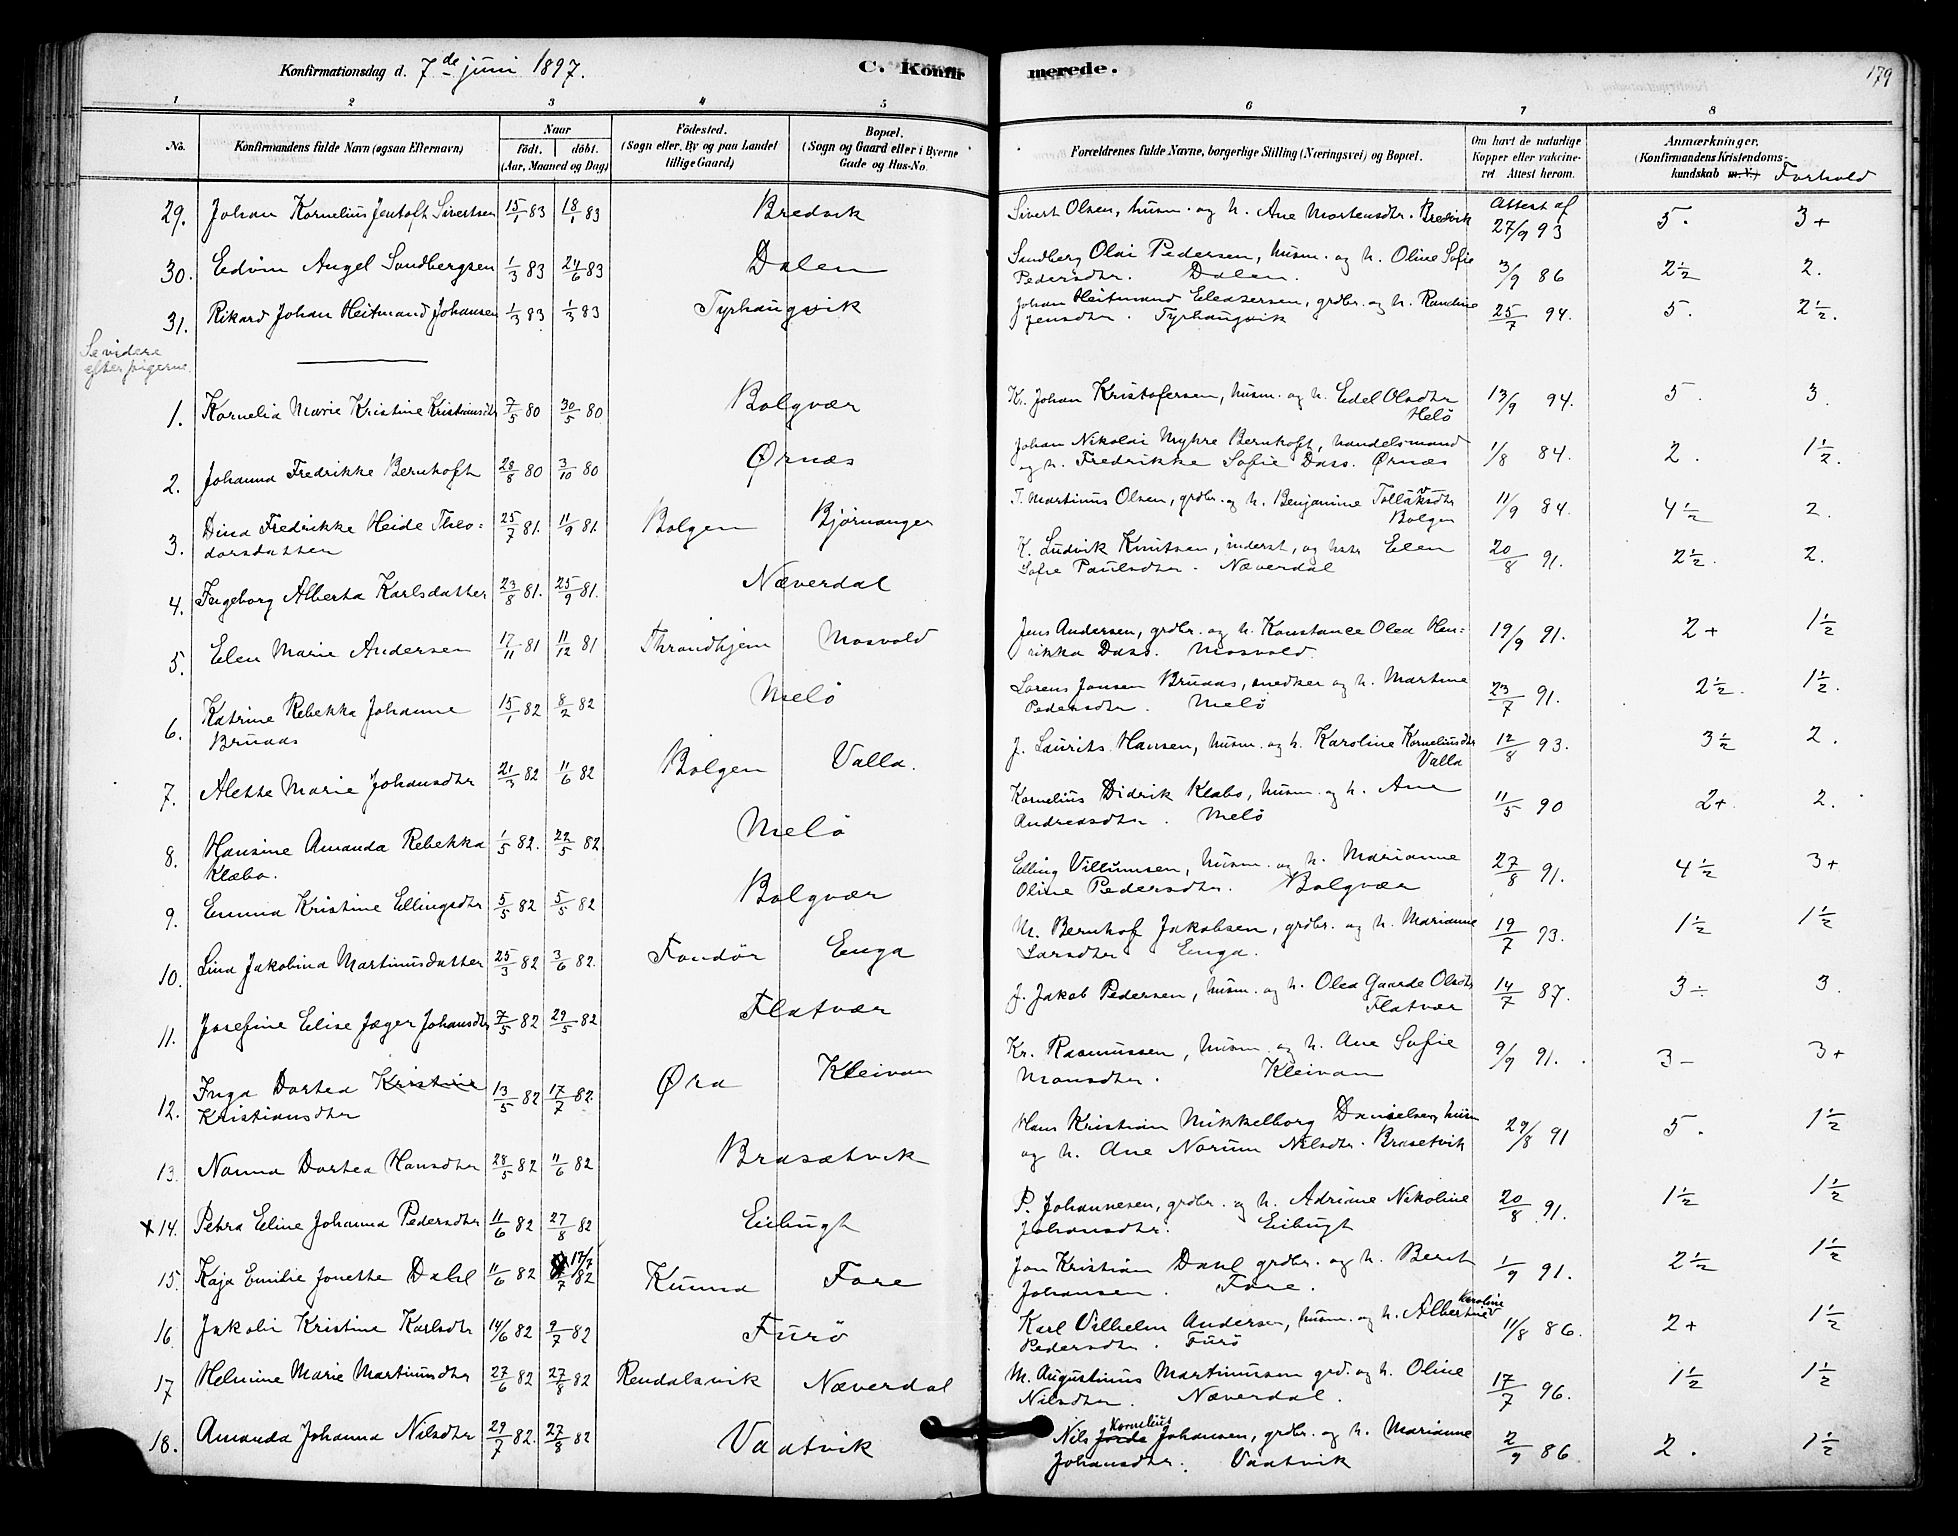 Konfirmationsdag d. 7de juni 1897.
C. Konfirmerede.
179
1 2 3 4 5 6 7 8
No.
Konfirmandens fulde Navn (ogsaa Efternavn)
Naar
födt. döbt.
(Aar, Maaned og Dag)
Födested.
(Sogn eller By og paa Landet
tillige Gaard)
Bopæl.
(Sogn og Gaard eller i Byerne
Gade og Hus-No.
Forældrenes fulde Navne, borgerlige Stilling (Næringsvei) og Bopæl.
Om havt de naturlige
Kopper eller vakcine-
ret Attest herom.
Anmærkninger.
(Konfirmandens Kristendoms-
kundskab m. V.) Forhold
29. Johan Kornelius Jentoft Sivertsen 15/1 83 18/1 83 Bredvik Sivert Olsen, husm. og h. Ane Mortensdtr. Bredvik Attest af 27/9 93 5. 3+
30. Edvin Angel Sandbergsen 1/3 83 24/6 83 Dalen Sandberg Olai Pedersen, husm. og h. Oline Sofie
Pedersdtr. Dalen. 3/9 86 2½ 2.
31. Rikard Johan Heitmand Johansen 1/3 83 1/3 83 Tyrhaugsvik Johan Heitmand Eleasersen, grdbr. og h. Randine
Jensdtr. Tyrhaugsvik 25/7 94. 5. 2½.
Se videre
efter pigerne
1. Kornelia Marie Kristine Kristiansdtr 7/5 80 30/5 80 Bolgvær Kr. Johan Kristofersen, husm. og h. Edel Olsdtr
Helö 13/9 94. 5. 3.
2. Johanna Fredrikke Bernhoft 28/8 80 3/10 80 Ørnæs Johan Nikolai Myhre Bernhoft, handelsmand
og h. Fredrikke Sofie Dass. Ørnæs 1/8 84. 2. 1½.
3. Dina Fredrikke Heide Theo=
dorsdatter 25/7 81. 11/9 81. Bolgen Bjørnanger T. Martinus Olsen, grdbr. og h. Benjamine Tollaksdtr
Bolgen 11/9 84. 4½ 2.
4. Ingeborg Alberta Karlsdatter 23/8 81. 25/9 81. Næverdal K. Ludvik Knutsen, inderst, og hstr Elen
Sofie Paulsdtr. Næverdal 20/8 91. 2½. 2.
5. Elen Marie Andersen 17/11 81 11/12 81 Throndhjem Mosvold Jens Andersen, grdbr. og h. Konstance Olea Hen=
rikka Dass. Mosvold. 19/9 91. 2+ 1½
6. Katrine Rebekka Johanne
Bruaas 15/1 82 8/2 82 Melö Lorens Jonsen Bruaas, snedker og h. Martine
Pedersdtr. Melö 23/7 91. 2½. 1½.
7. Alette Marie Johansdtr 21/3 82 11/6 82 Bolgen Valla. J. Laurits Hansen, husm. og h. Karoline Korneliusdtr
Valla 12/8 93. 3½ 2.
8. Hansine Amanda Rebekka
Klæbo. 1/5 82. 22/5 82 Melö Kornelius Didrik Klæbo, husm. og h. Ane
Andreasdtr. Melö 11/5 90 2+. 2.
9. Emma Kristine Ellingsdtr 5/5 82 5/5 82 Bolgvær Elling Villumsen, husm. og h. Marianne
Oline Pedersdtr. Bolgvær 27/8 91. 4½ 3+
10. Lina Jakobina Martinusdatter 25/3 82 3/6 82. Fondör Enga M. Bernhof Jakobsen, grdbr. og h. Marianne
Larsdtr Enga. 19/7 93. 1½ 1½
11. Josefine Elise Jæger Johansdtr 7/5 82 29/5 82 Flatvær J. Jakob Pedersen, husm. og h. Olea Gaarde Olsdtr
Flatvær 14/7 87. 3÷ 3.
12. Inga Dortea Kristine
Kristiansdtr 13/5 82 17/7 82. Øra Kleivan Kr. Rasmussen, husm. og h. Ane Sofie
Monsdtr. Kleivan 9/9 91. 3- 3+
13. Nanna Dortea Hansdtr 28/5 82 11/6 82 Brasetvik Hans Kristian Mikkelborg Danielsen, husm
og h. Ane Norum Nilsdtr. Brasetvik 29/8 91 5. 1½
x14. Petra Eline Johanna Pedersdtr 11/6 82 27/8 82 Eibugt P. Johannesen, grdbr. og h. Adriane Nikoline
Johansdtr. Eibugt 20/8 91. 1½ 1½
15. Kaja Emilie Jonette Dahl 11/6 82 17/7 82 Kunna Fore Jon Kristian Dahl grdbr. og h. Berit
Johansen. Fore. 1/9 91. 2½ 1½
16. Jakobi Kristine Karlsdtr 14/6 82 9/7 82 Furö Karl Vilhelm Andersen, husm. og h. Albertine Karoline
Pedersdtr. Furö 11/8 86. 2+ 1½
17 Helmine Marie Martinusdtr 27/6 82 27/8 82 Rendalsvik Næverdal M. Augustinus Martinussen grd. og h. Oline
Nilsdtr. Næverdal. 17/7 96. 1½ 1½
18. Amanda Johanna Nilsdtr 29/7 82. 27/8 82 Vaatvik Nils Kornelius Johansen, grdbr. og h. Marianne
Johansdtr. Vaatvik 2/9 86 2. 1½